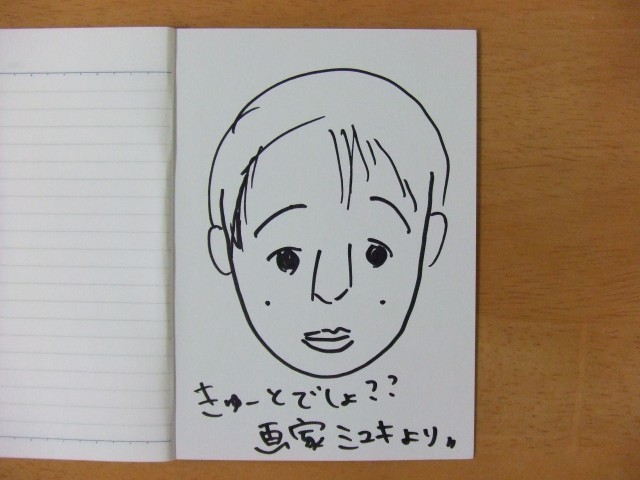 きゅーとでしょ??
画家ミユキより〃